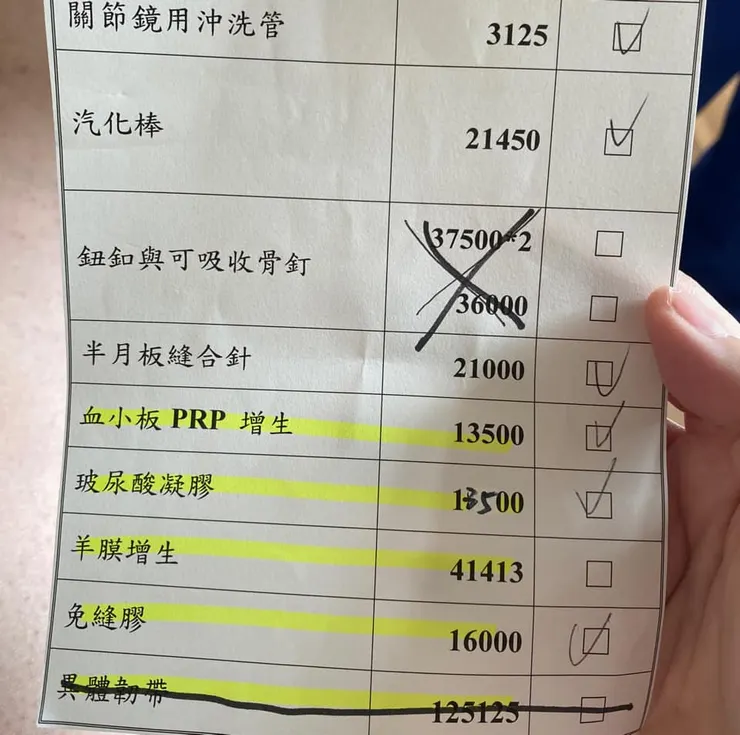 關節鏡用沖洗管 3125
汽化棒 21450
鈕釦與可吸收骨釘 37500*2
36000
半月板縫合針 21000
血小板 PRP 增生 13500
玻尿酸凝膠 13500
羊膜增生 41413
免縫膠 16000
異體韌帶 125125